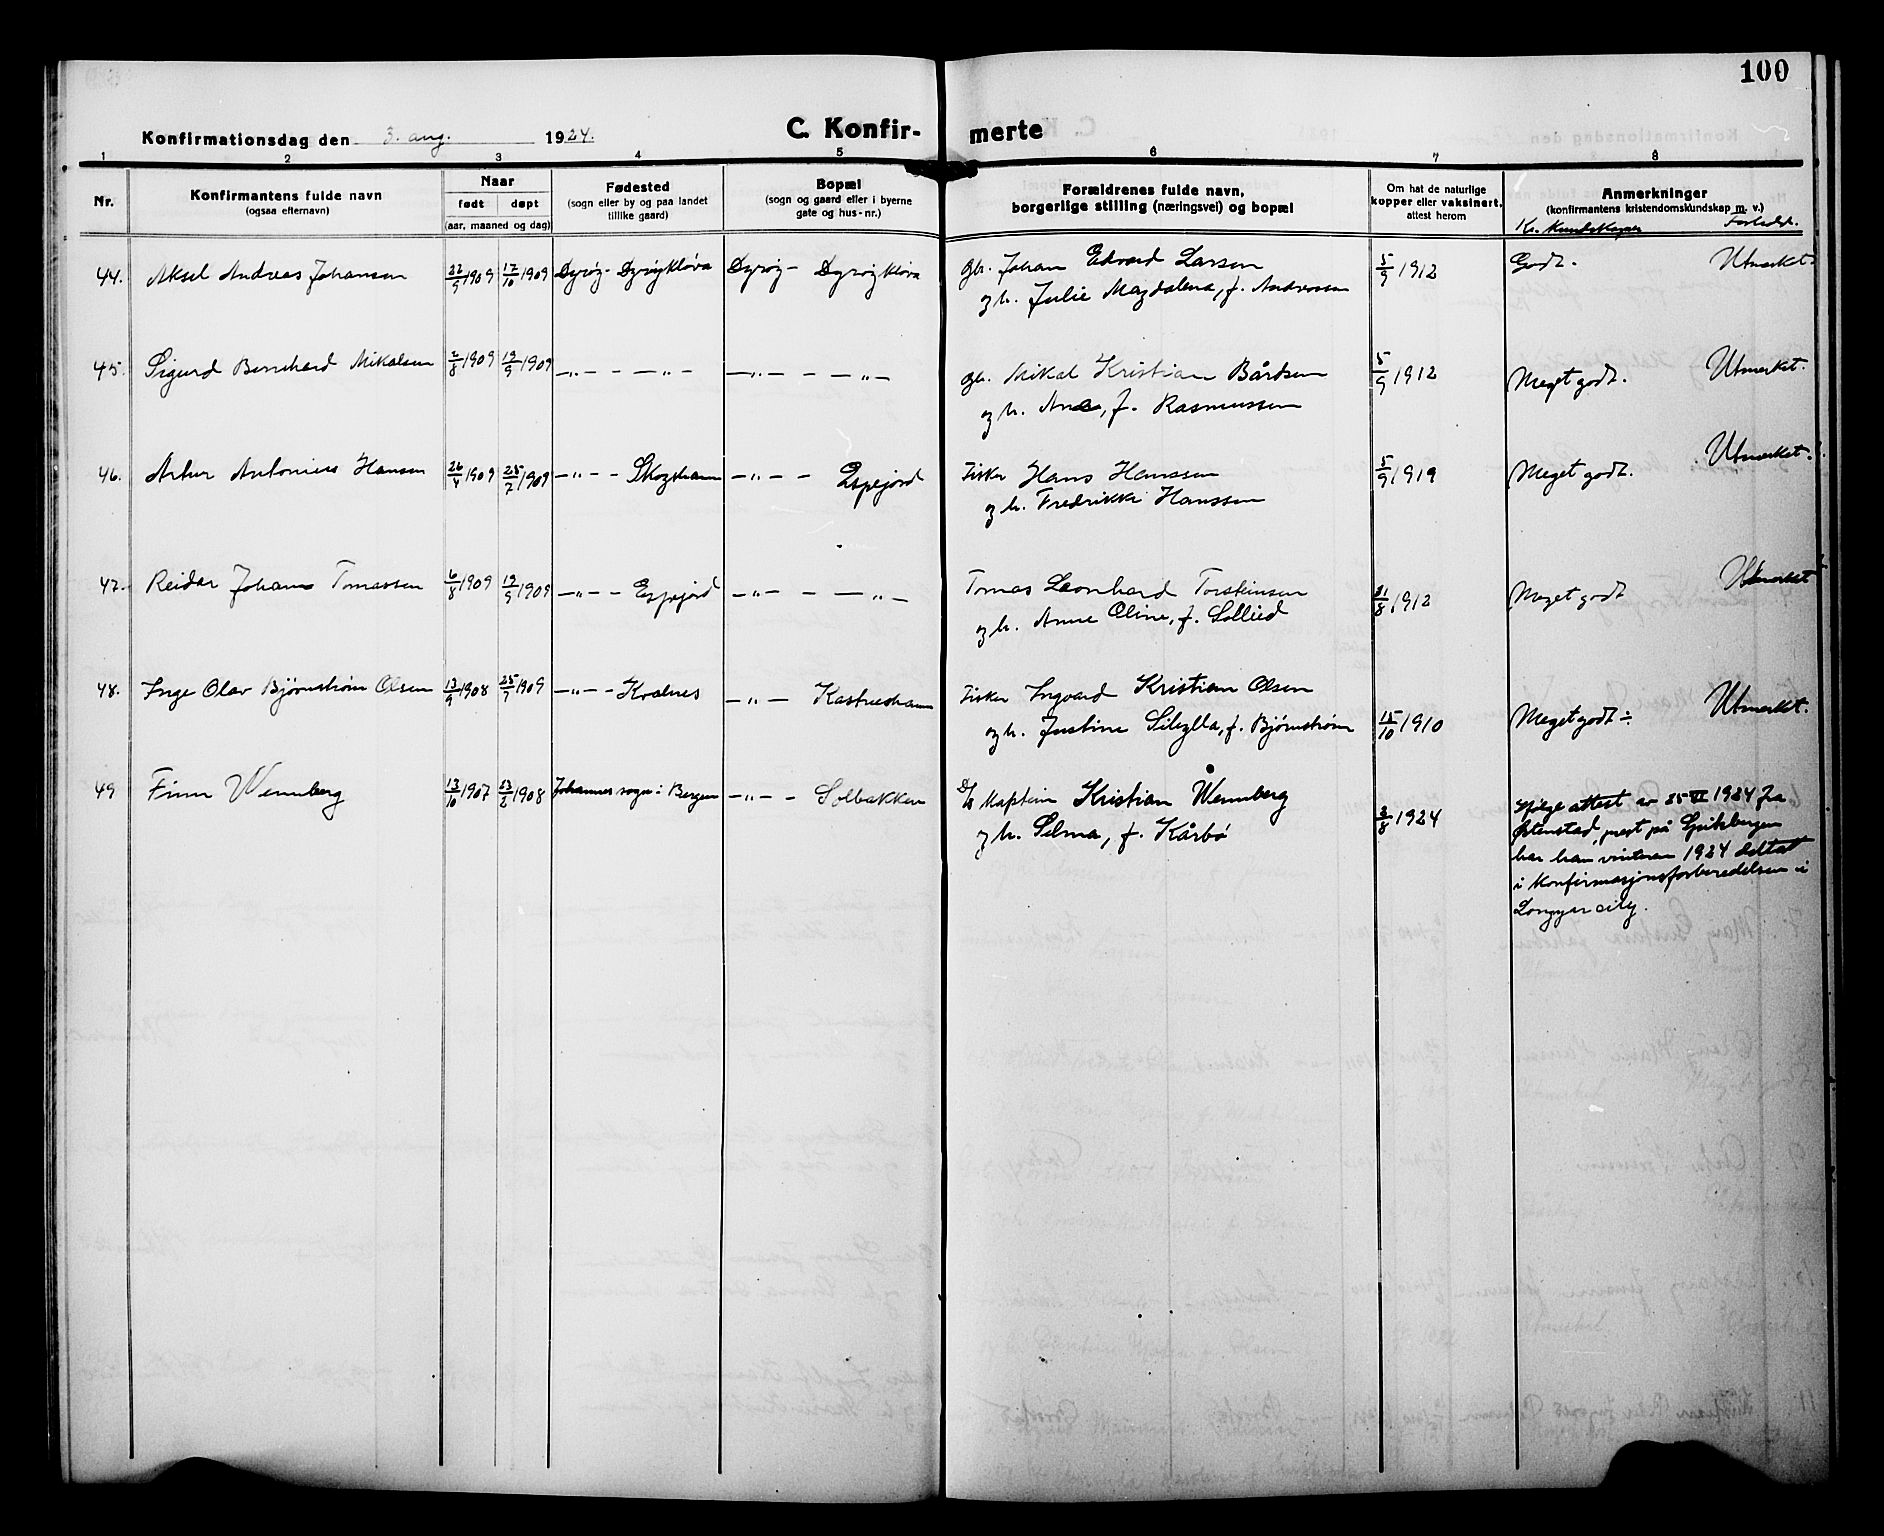 100
Konfirmationsdag den 3. aug. 1924.
C. Konfir-merte
1 2 3 4 5 6 7 8
Nr.
Konfirmantens fulde navn
(ogsaa efternavn)
Naar
født døpt
(aar, maaned og dag)
Fødested
(sogn eller by og paa landet
tillike gaard)
Bopæl
(sogn og gaard eller i byerne
gate og hus-nr.)
Forældrenes fulde navn,
borgerlige stilling (næringsvei) og bopæl
Om hat de naturlige
kopper eller vaksinert,
attest herom
Anmerkninger
(konfirmantens kristendomskundskap m. v.)
Kr. Kundskaper Forhold.
44. Aksel Andreas Johansen 22/9 1909 17/10 1909 Dyrøy - Dyrøykløva Dyrøy - Dyrøykløva Gbr. Johan Edvard Larsen 5/9 1912 Godt. Utmerket.
og h. Julie Magdalena, f. Andressen
45. Sigurd Bernhard Mikalsen 2/8 1909 19/9 1909 —„— — —„— —„— — —„— Gbr. Mikal Kristian Bårdsen 5/9 1912 Meget godt. Utmerket.
og h. Ana, f. Rasmussen
46. Artur Antonius Hansen 26/4 1909 25/7 1909 —„— — Skoghamn —„— — Espejord Fisker Hans Hanssen 5/9 1919 Meget godt. Utmerket.
og h. Fredrikke Hanssen
47. Reidar Johans Tomassen 6/8 1909 19/9 1909 —„— — Espejord —„— — —„— Tomas Leonhard Torsteinsen 31/8 1912 Meget godt Utmerket
og h. Anne Oline, f. Sollied
48. Inge Olav Bjørnstrøm Olsen 13/9 1908 25/7 1909 —„— — Kvalnes —„— — Kastneshamn Fisker Ingvard Kristian Olsen
og h. Justine Sibylla, f. Bjørnstrøm 15/10 1910 Meget godt ÷ Utmerket.
49 Finn Wennberg 13/10 1907 23/2 1908 Johannes sogn i Bergen —„— — Solbakken D/s Kaptein Kristian Wennberg
og h. Selma, f. Kårbø 3/8 1924
Ifølge attest av 25-VI 1924 fra
Østenstad, prest på Spitsbergen
har han vinteren 1924 deltat
i Konfirmasjonsforberedelsen i
Longyear city.